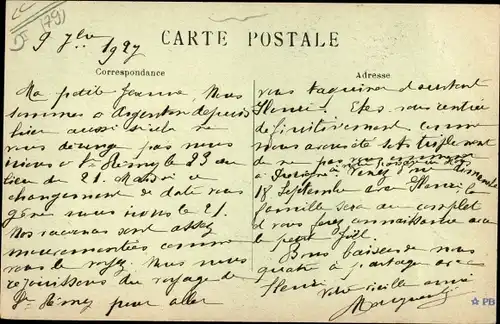 (79)
9 7bre 1927
CARTE POSTALE
Correspondance
Adresse
Ma petite Jeanne, Nous
sommes à Argenton depuis
hier aussi si cela ne
vous dérange pas nous
irions à St Rémy le 23 au
lieu du 21. Mais si ce
changement de date vous
gêne nous irons le 21.
Nos vacances sont assez
mouvementées comme
vous le voyez. Nous nous
réjouissons du voyage de
St Rémy pour aller
vous taquiner d'autant
Henri! Etes vous rentrée
définitivement comme
nous
de ne pas
à Venez dimanche
18 Septembre avec Henri la
famille sera au complet
et vous ferez connaissance avec
le petit
Bons baisers de nous
quatre à partager avec
Henri. Votre vieille amie
Marguerite
☆ PB